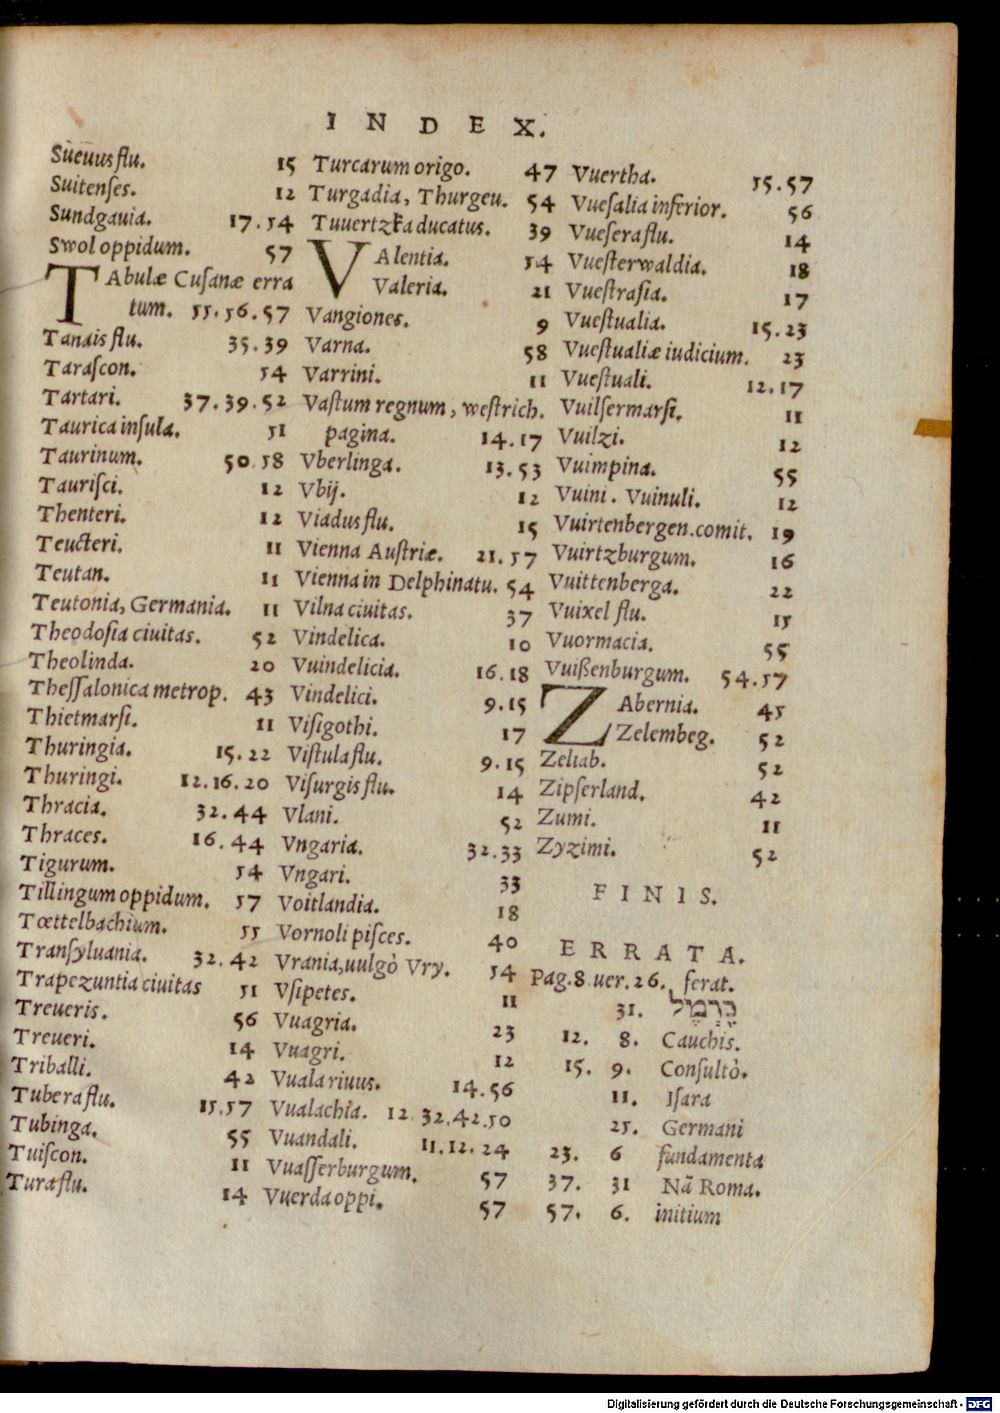 INDEX.
Sueuus flu. 15
Suitenſes. 12
Sundgauia. 17.54
Swol oppidum. 57
TAbulæ Cuſanæ erra
tum. 55.56.57
Tanais flu. 35.39
Taraſcon. 54
Tartari. 37.39.52
Taurica inſula. 51
Taurinum. 50.58
Tauriſci. 12
Thenteri. 12
Teucteri. 11
Teutan. 11
Teutonia, Germania. 11
Theodoſia ciuitas. 52
Theolinda. 20
Theſſalonica metrop. 43
Thietmarſi. 11
Thuringia. 15.22
Thuringi. 12.16.20
Thracia. 32.44
Thraces. 16.44
Tigurum. 54
Tillingum oppidum. 57
Tœttelbachium. 55
Tranſyluania. 32.42
Trapezuntia ciuitas 51
Treueris. 56
Treueri. 14
Triballi. 42
Tubera flu. 15.57
Tubinga. 55
Tuiſcon. 11
Tura flu. 14
Turcarum origo. 47
Turgadia, Thurgeu. 54
Tuuertzka ducatus. 39
VAlentia. 54
Valeria. 21
Vangiones. 9
Varna. 58
Varrini. 11
Vaſtum regnum, weſtrich.
pagina. 14.17
Vberlinga. 13.53
Vbij. 12
Viadus flu. 15
Vienna Auſtriæ. 21.57
Vienna in Delphinatu. 54
Vilna ciuitas. 37
Vindelica. 10
Vuindelicia. 16.18
Vindelici. 9.15
Viſigothi. 17
Viſtula flu. 9.15
Viſurgis flu. 14
Vlani. 52
Vngaria. 32.33
Vngari. 33
Voitlandia. 18
Vornoli piſces. 40
Vrania, uulgò Vry. 54
Vſipetes. 11
Vuagria. 23
Vuagri. 12
Vuala riuus. 14.56
Vualachia. 12.32.42.50
Vuandali. 11.12.24
Vuaſſerburgum. 57
Vuerda oppi. 57
Vuertha. 55.57
Vueſalia inferior. 56
Vueſera flu. 14
Vueſterwaldia. 18
Vueſtraſia. 17
Vueſtualia. 15.23
Vueſtualiæ iudicium. 23
Vueſtuali. 12.17
Vuilſermarſi. 11
Vuilzi. 12
Vuimpina. 55
Vuini. Vuinuli. 12
Vuirtenbergen. comit. 19
Vuirtzburgum. 16
Vuittenberga. 22
Vuixel flu. 15
Vuormacia. 55
Vuißenburgum. 54.57
ZAbernia. 45
Zelembeg. 52
Zeliab. 52
Zipſerland. 42
Zumi. 11
Zyzimi. 52
FINIS.
ERRATA.
Pag. 8 uer. 26. ferat.
31. כַּרְמֶל
12. 8. Cauchis.
15. 9. Conſultò.
11. Iſara
25. Germani
23. 6 fundamenta
37. 31 Nã Roma.
57. 6. initium
Digitalisierung gefördert durch die Deutsche Forschungsgemeinschaft - DFG